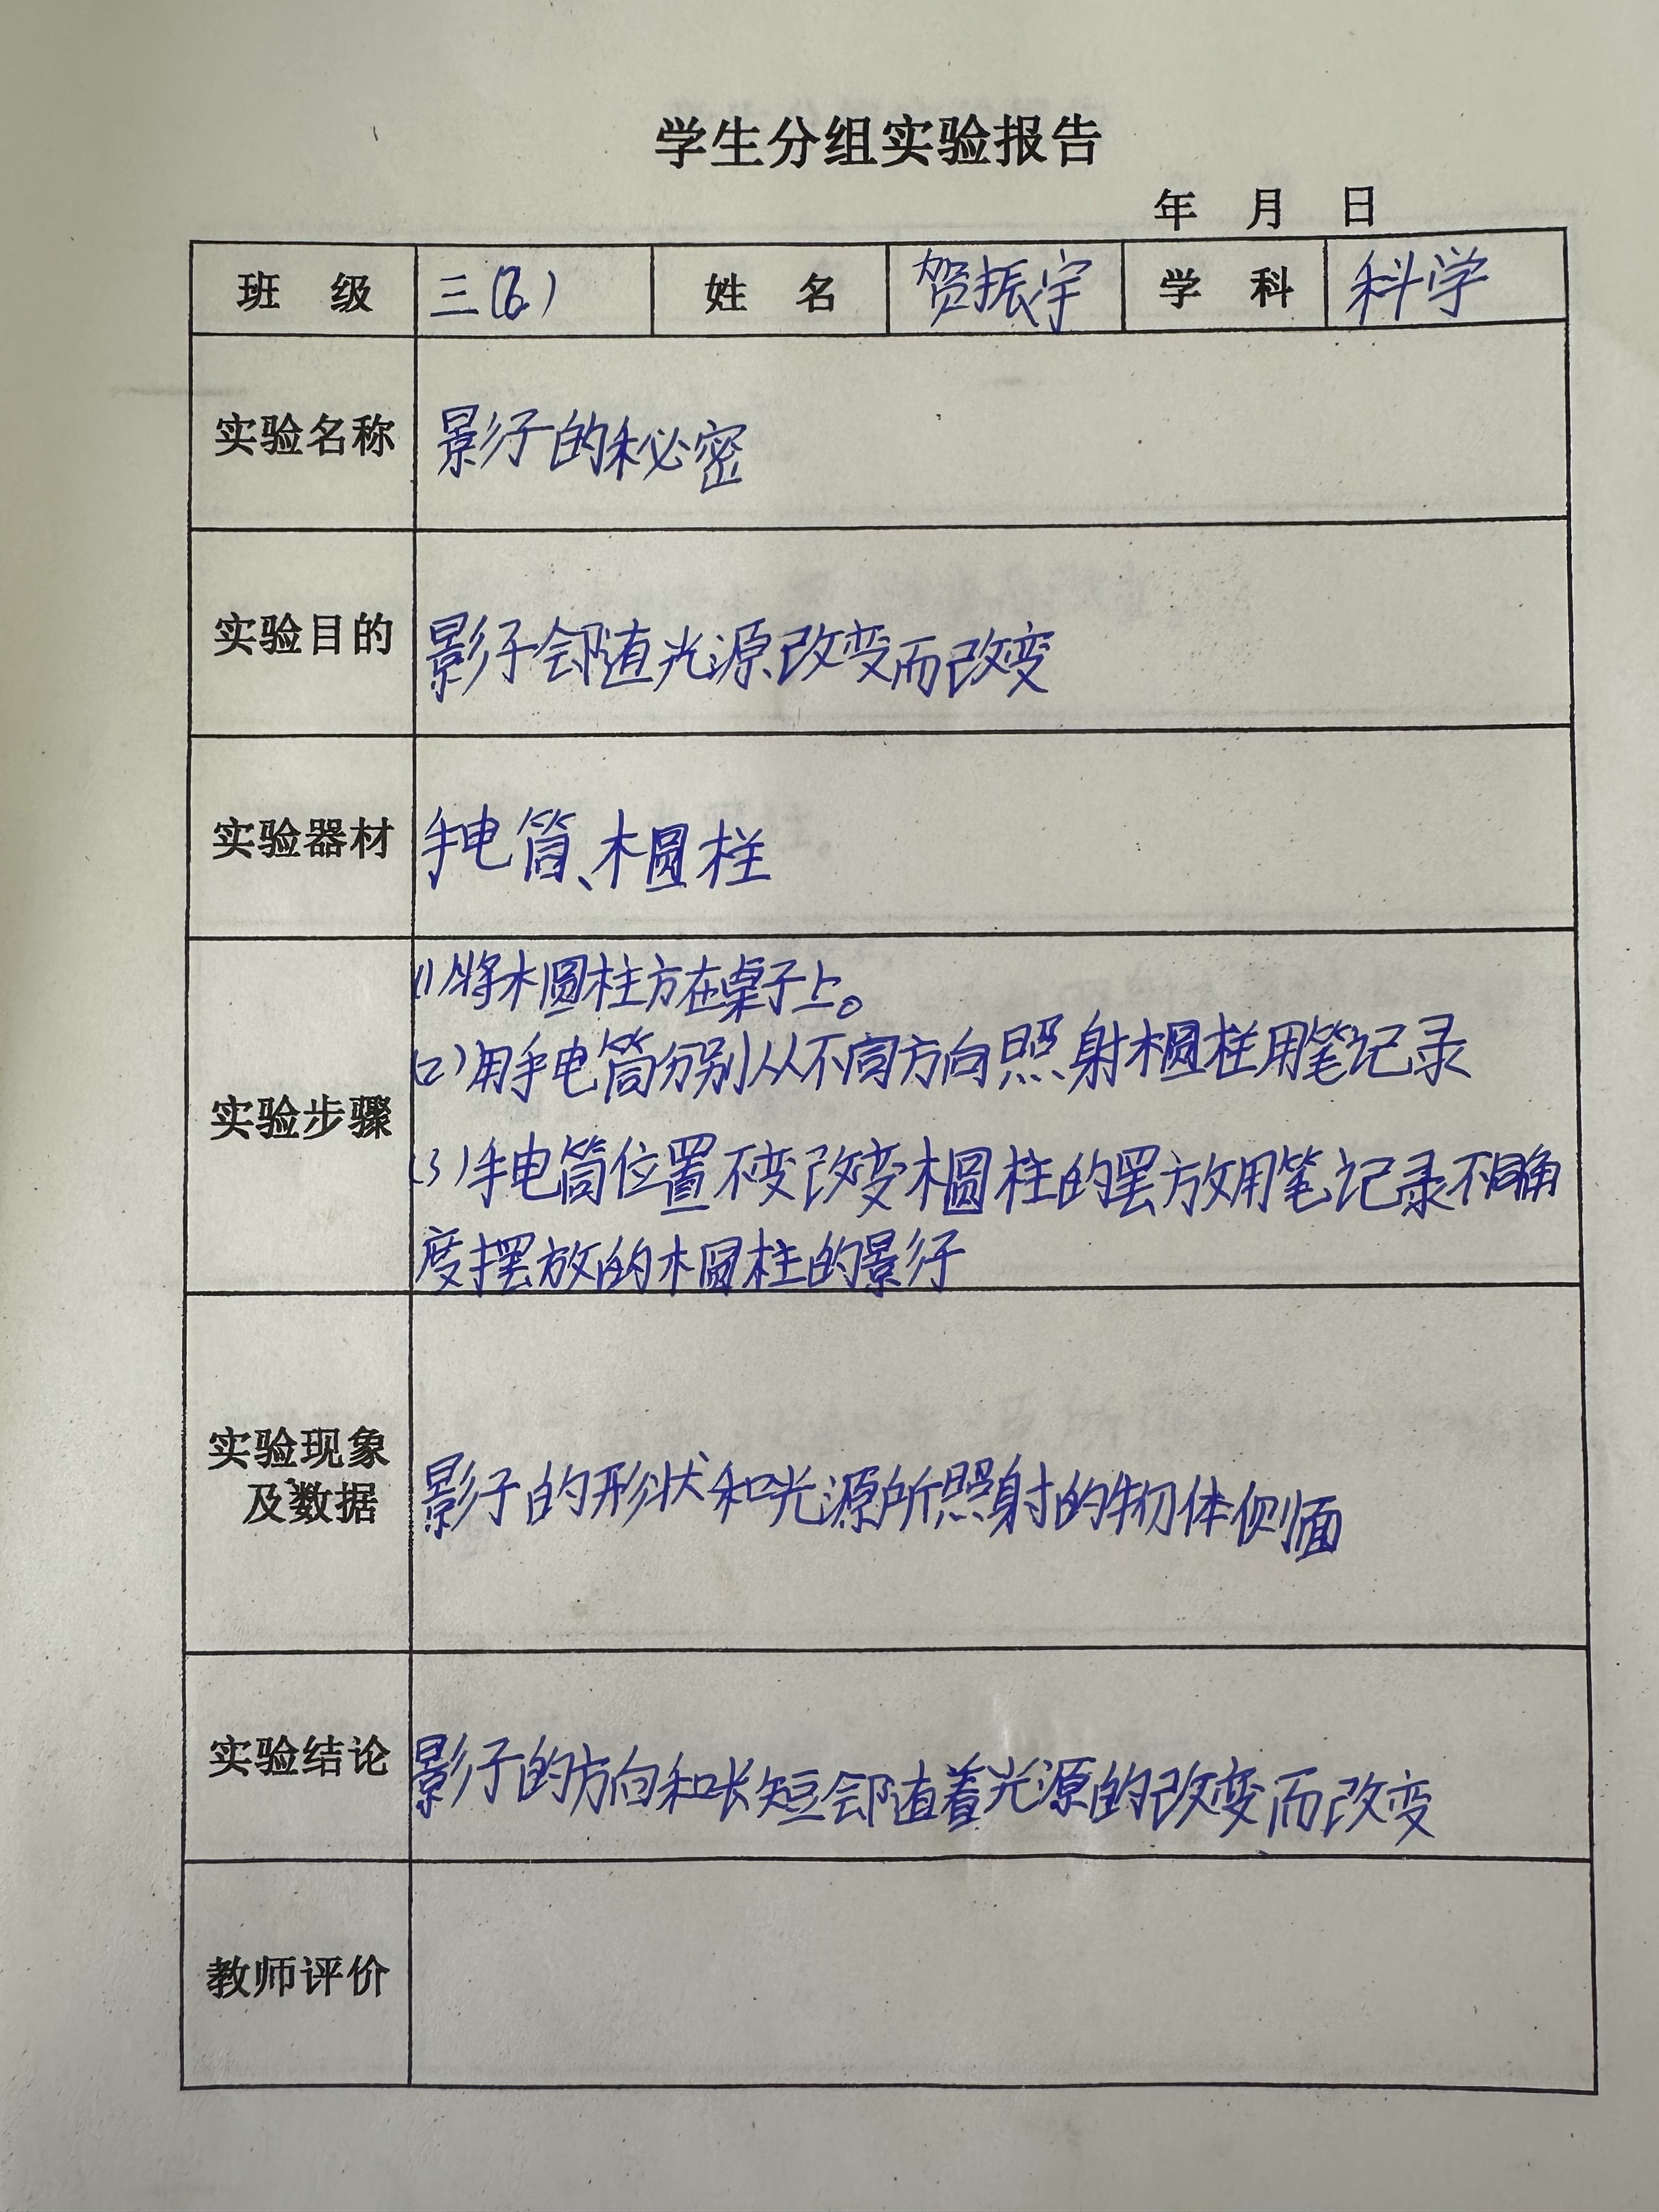 学生分组实验报告
年 月 日
班 级 三(6) 姓 名 贺振宇 学 科 科学
实验名称 影子的秘密
实验目的 影子会随光源改变而改变
实验器材 手电筒、木圆柱
(1)将木圆柱方在桌子上。
(2)用手电筒分别从不同方向照射木圆柱用笔记录
实验步骤
(3)手电筒位置不变改变木圆柱的罢放用笔记录不同角
度摆放的木圆柱的影子
实验现象
及数据 影子的形状和光源所照射的物体侧面
实验结论 影子的方向和长短会随着光源的改变而改变
教师评价